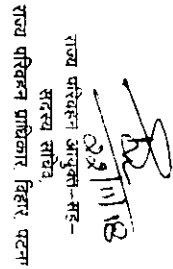 22/11/18
राज्य परिवहन आयुक्त-सह-
सदस्य सचिव,
राज्य परिवहन प्राधिकार, बिहार, पटना